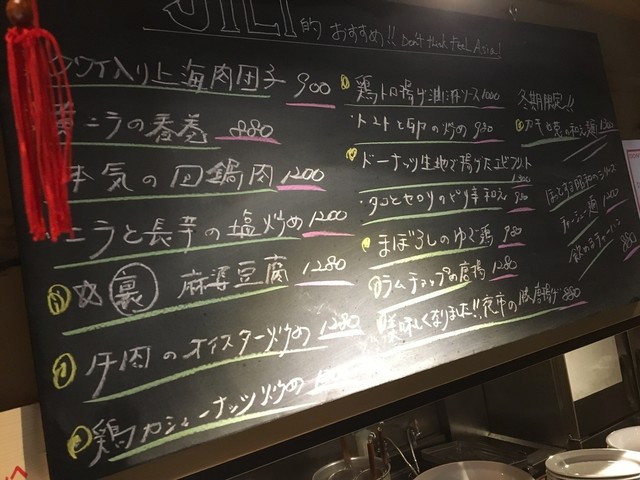 JILI的 おすすめ!! Don't think feel Asia!
クワイ入り上海肉団子 900
黄ニラの春巻 880
本気の回鍋肉 1200
ニラと長芋の塩炒め 1200
裏 麻婆豆腐 1280
牛肉のオイスター炒め 1280
鶏カシューナッツ炒め
鶏トロ揚げ 油淋ソース 1000
・トマトと卵の炒め 980
ドーナツ生地で揚げたエビフリット
1300
・タコとセロリのピリ辛和え 950
まぼろしのゆで鶏 980
ラムチョップの唐揚 1280
美味しくなりました!! 豚揚げ 880
冬期限定!!
カキと の和え麺 1300
チャーシュー麺 1200
飲めるチャーハン
880